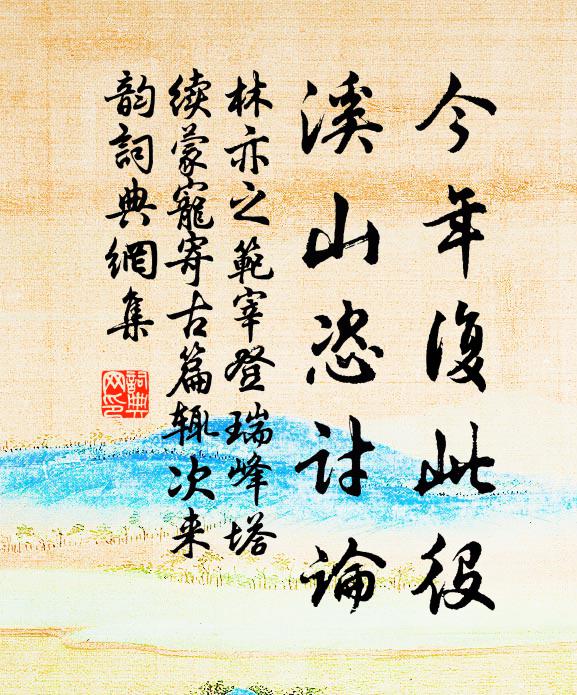 今年復此役
溪山恣討論
林亦之範宰登瑞峰塔
续蒙寵寄古篇辄次来
韵詞典網集
詞典
网印